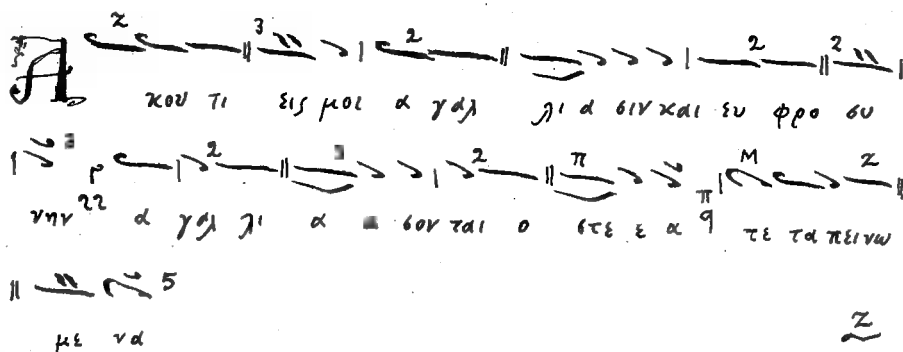 Α κου τι εις μοι α γαλ λι α σιν και ευ φρο συ
νην α γαλ λι α σον ται ο στε ε α τε τα πει νω
με να